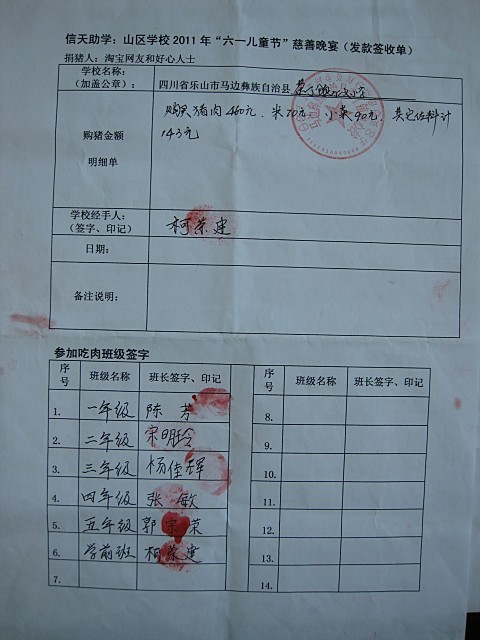 信天助学：山区学校 2011 年“六一儿童节”慈善晚宴（发款签收单）
捐猪人：淘宝网友和好心人士
学校名称：
（加盖公章）：
四川省乐山市马边彝族自治县
购猪金额
明细单
购买猪肉460元、米70元、小菜90元、其它佐料计
143元
学校经手人：
（签字、印记）
柯荣建
日期：
备注说明：
参加吃肉班级签字
序号 班级名称 班长签字、印记 序号 班级名称 班长签字、印记
1. 一年级 陈芳 8.
2. 二年级 宋明玲 9.
3. 三年级 杨佳辉 10.
4. 四年级 张敏 11.
5. 五年级 郭宗荣 12.
6. 学前班 柯荣建 13.
7. 14.